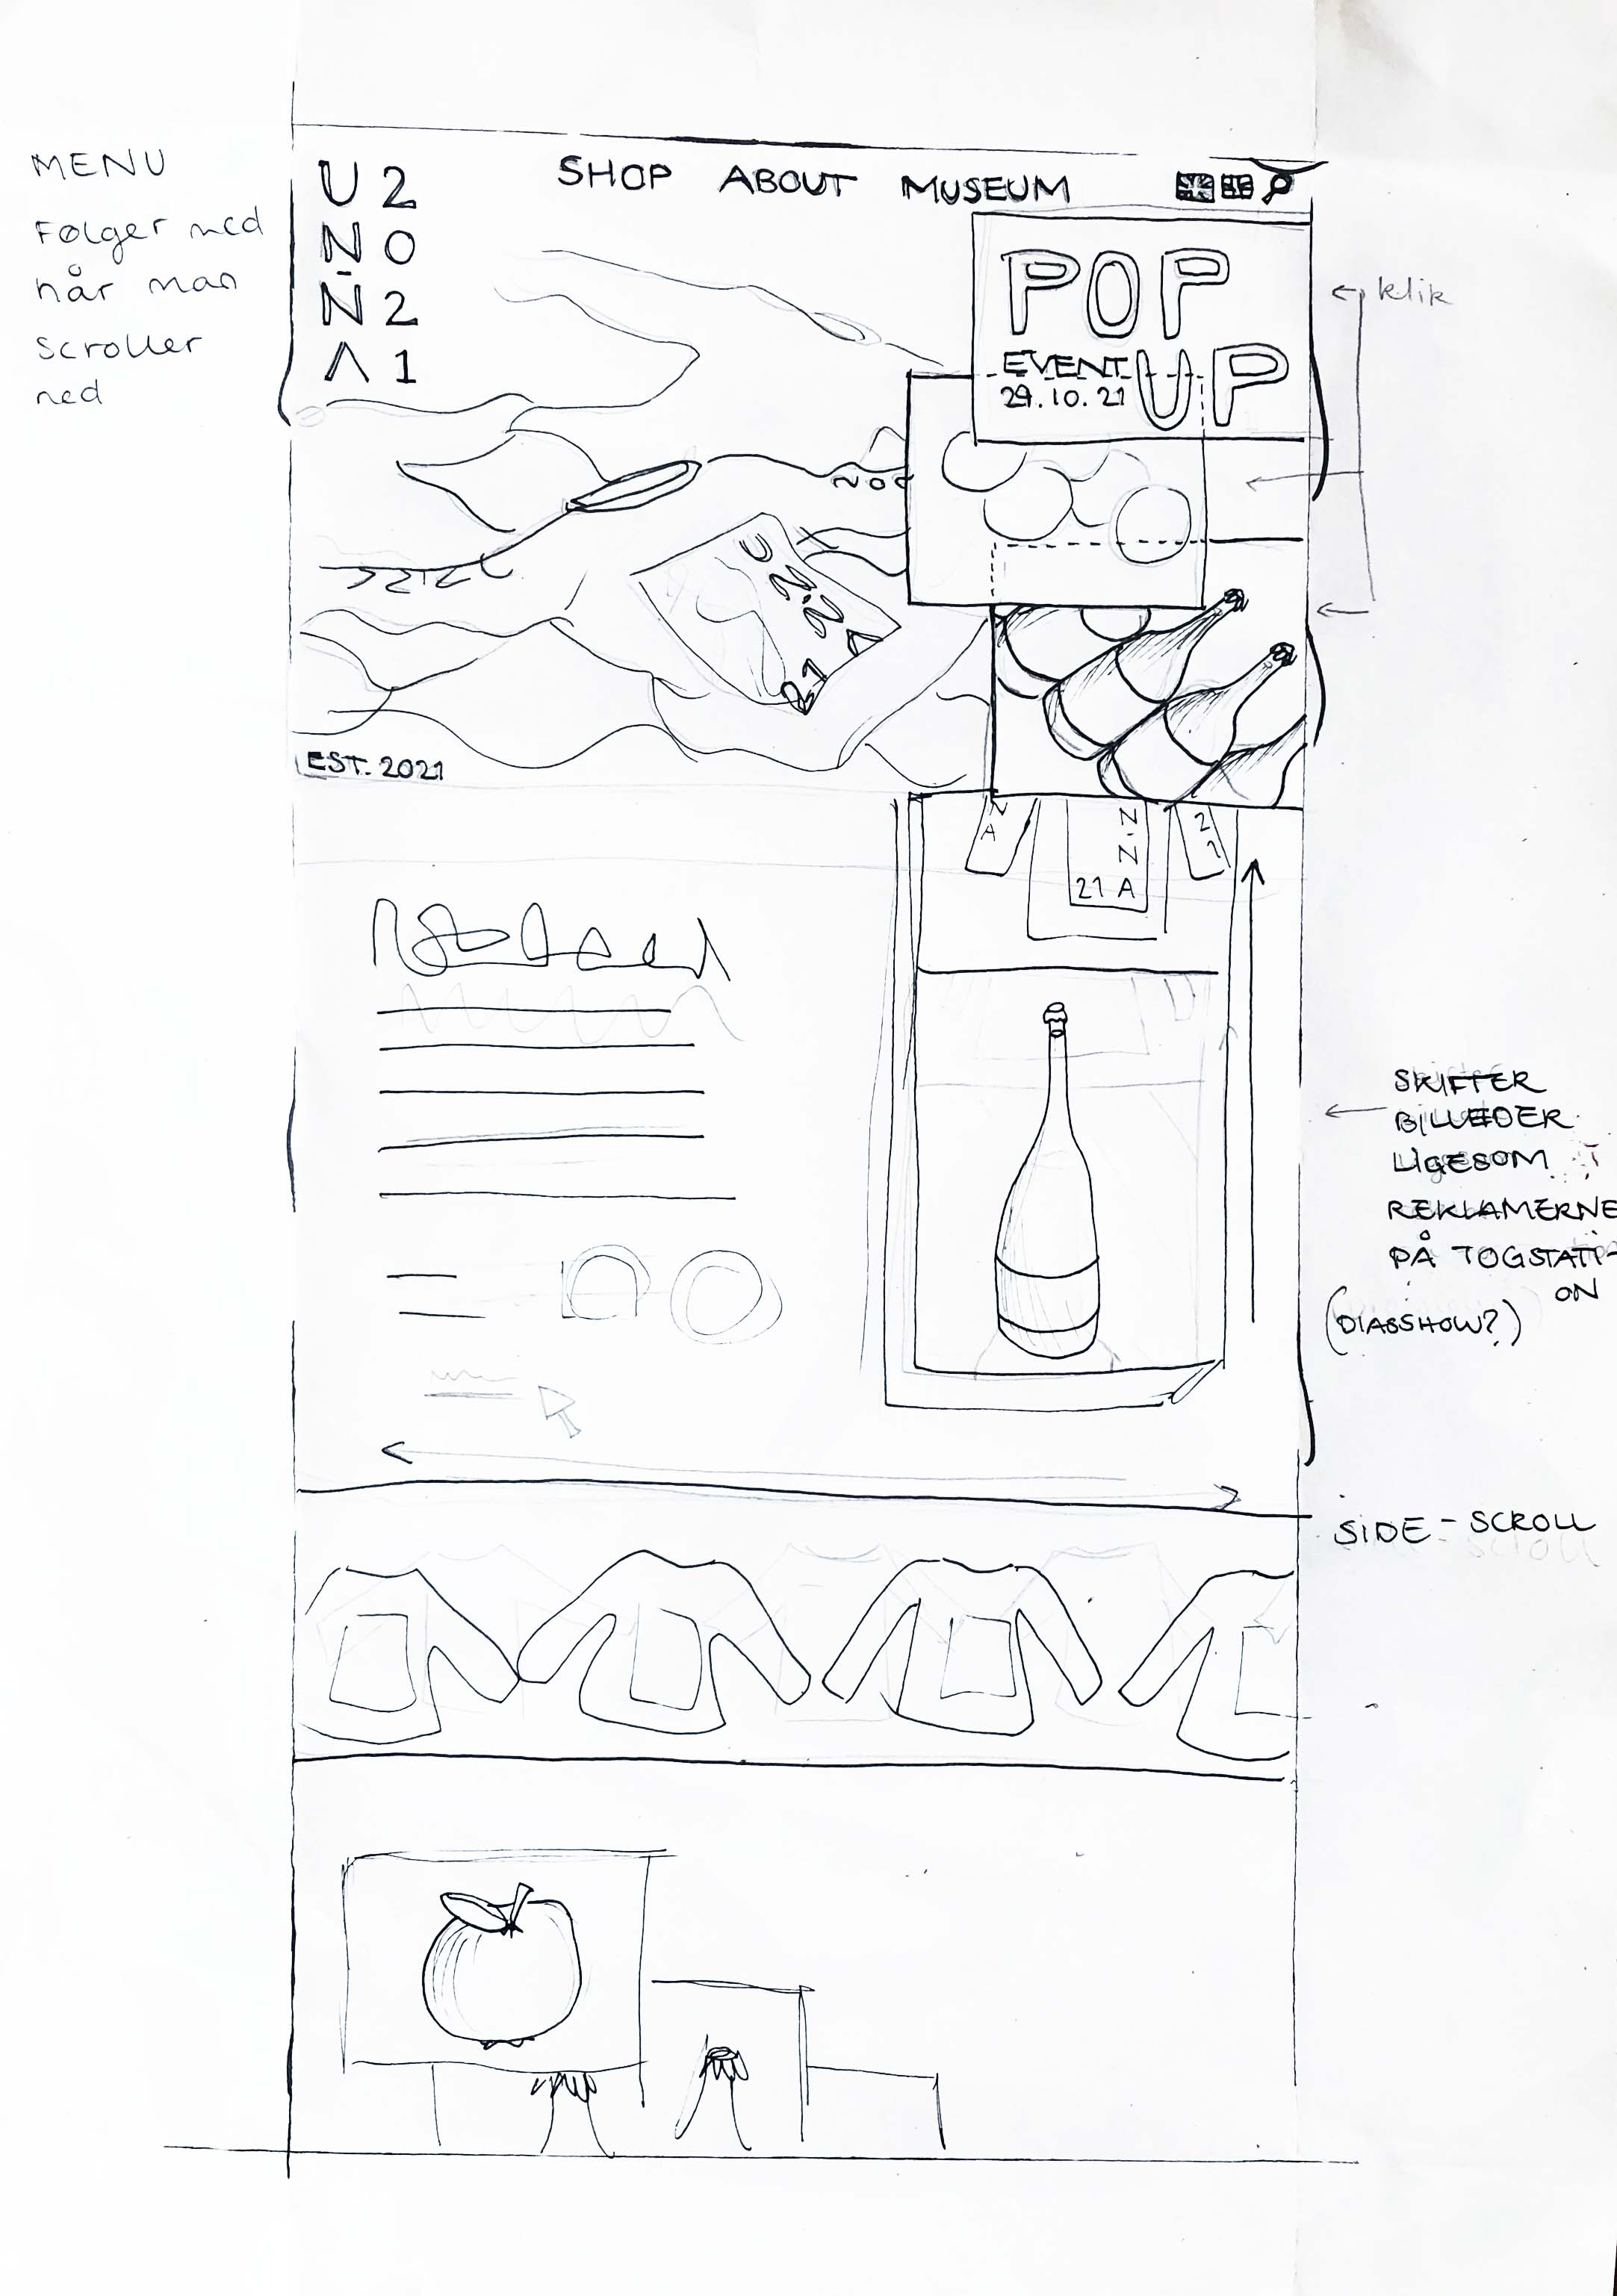 MENU
Følger med
når man
Scroller
ned
U 2
N O
N 2
Λ 1
SHOP ABOUT MUSEUM
POP
UP
EVENT
29.10.21
← klik
EST. 2021
N
A
N
N
21 A
2
1
SKIFTER
BILLEDER
LIGESOM
REKLAMERNE
PÅ TOGSTATI-
ON
(DIASSHOW?)
SIDE-SCROLL